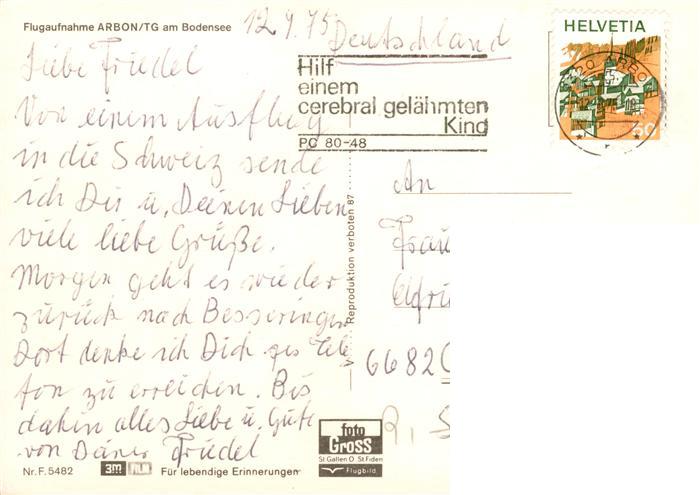 Flugaufnahme ARBON/TG am Bodensee
12.9.75
Deutschland
HELVETIA
Hilf
einem
cerebral gelähmten
Kind
PC 80-48
Liebe Friedel
Von einem Ausflug
in die Schweiz sende
ich Dir u. Deinen Lieben
viele liebe Grüße.
Morgen geht es wieder
zurück nach Besseringen
Dort denke ich Dich per Tele
fon zu erreichen. Bis
dahin alles Liebe u. Gute
von Deiner Friedel
An
Frau
6682
Reproduktion verboten 87
foto
Gross
St Gallen O St Fiden
Flugbild
Nr. F. 5482
3m
Für lebendige Erinnerungen